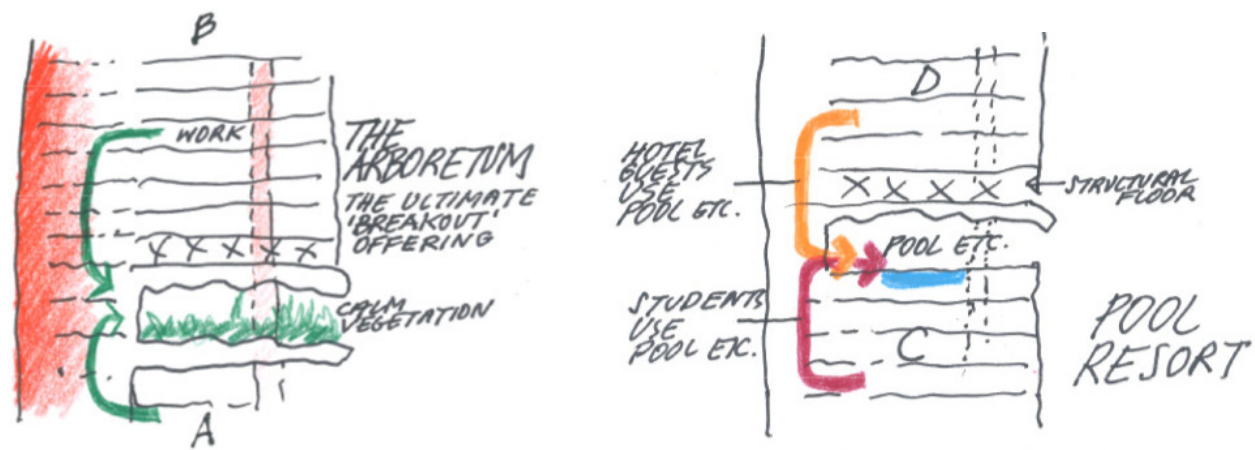 B
WORK
THE
ARBORETUM
THE ULTIMATE
'BREAKOUT'
OFFERING
CALM
VEGETATION
A
D
HOTEL
GUESTS
USE
POOL ETC.
STRUCTURAL
FLOOR
POOL ETC.
STUDENTS
USE
POOL ETC.
C
POOL
RESORT